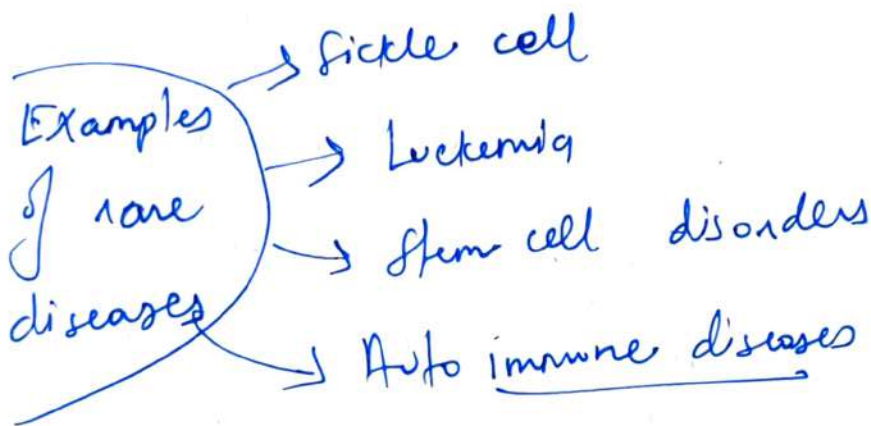 Examples
of rare
diseases
Sickle cell
Luckemia
Stem cell disorders
Auto immune diseases